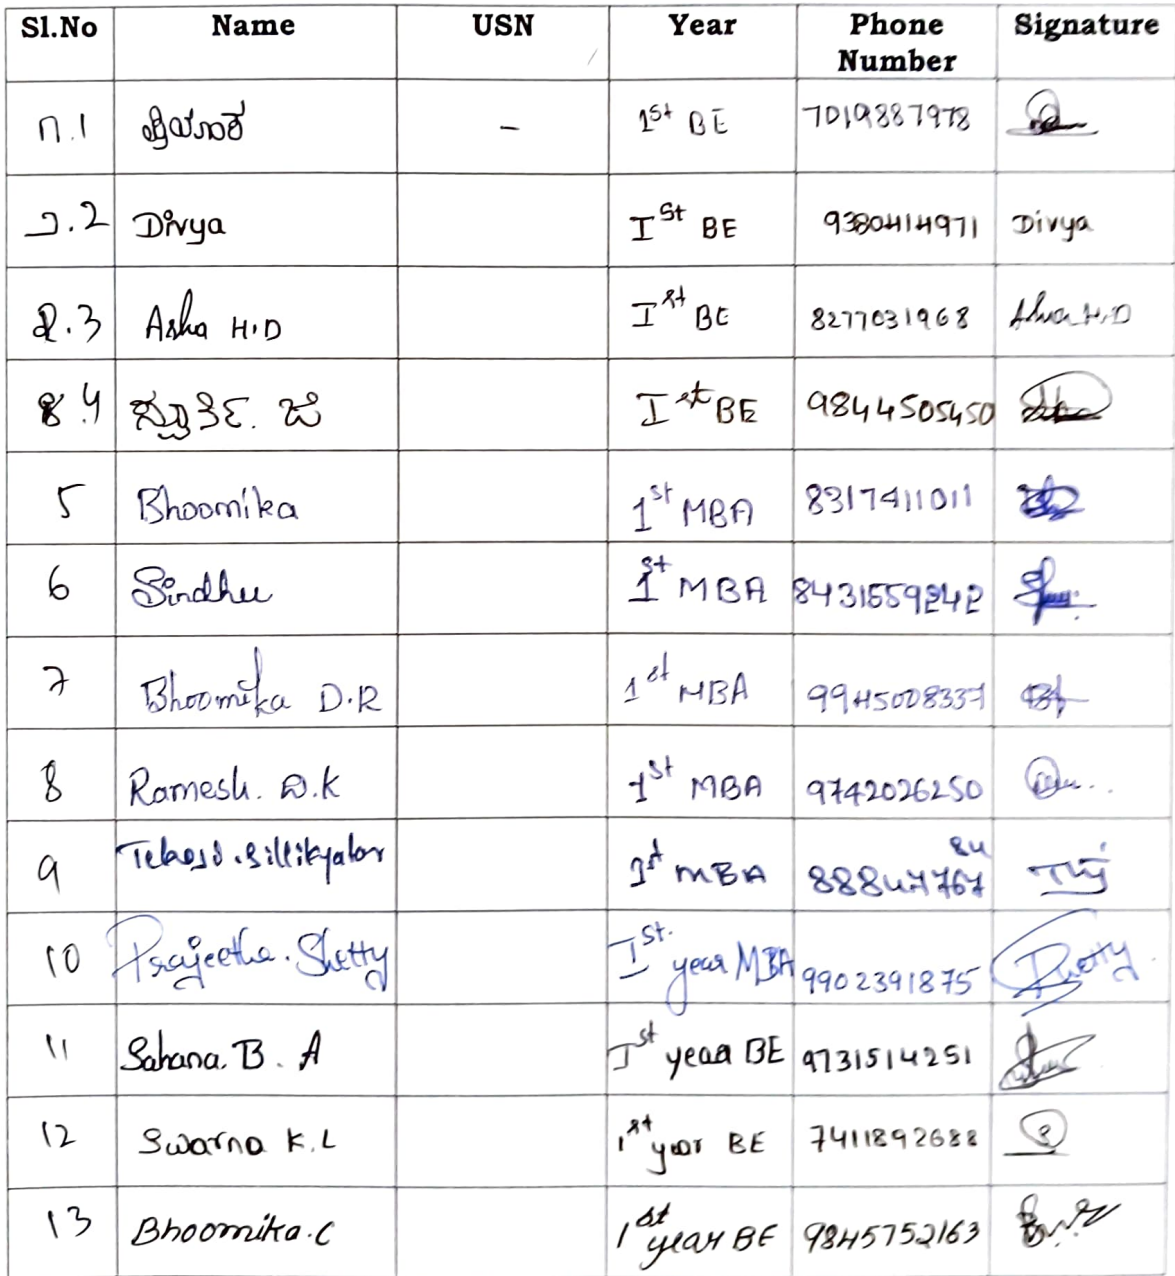 Sl.No Name USN Year Phone Number Signature
1 - 1st BE 7019887978
2 Divya Ist BE 9380414971 Divya
3 Asha H.D Ist BE 8277031968 Asha H.D
4 ಸ್ಪೂರ್ತಿ. ಜಿ Ist BE 9844505450
5 Bhoomika 1st MBA 8317411011
6 Sindhu 1st MBA 8431559242
7 Bhoomika D.R 1st MBA 9945008337
8 Ramesh. D.K 1st MBA 9742026250
9 1st MBA 8884776784
10 Prajeetha. Shetty Ist year MBA 9902391875 Shetty
11 Sahana. B. A Ist year BE 9731514251
12 Swarna K.L 1st year BE 7411892688
13 Bhoomika.C 1st year BE 9845752163